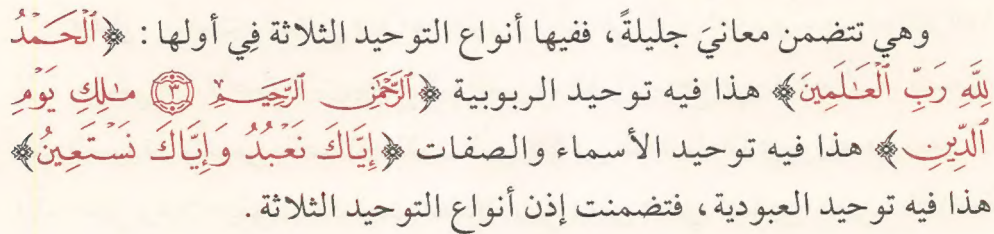 وهي تتضمن معانيَ جليلةً، ففيها أنواع التوحيد الثلاثة فِي أولها: ﴿ٱلْحَمْدُ
لِلَّهِ رَبِّ ٱلْعَـٰلَمِينَ﴾ هذا فيه توحيد الربوبية ﴿ٱلرَّحْمَٰنِ ٱلرَّحِيمِ ۝٣ مَـٰلِكِ يَوْمِ
ٱلدِّينِ﴾ هذا فيه توحيد الأسماء والصفات ﴿إِيَّاكَ نَعْبُدُ وَإِيَّاكَ نَسْتَعِينُ﴾
هذا فيه توحيد العبودية، فتضمنت إذن أنواع التوحيد الثلاثة.